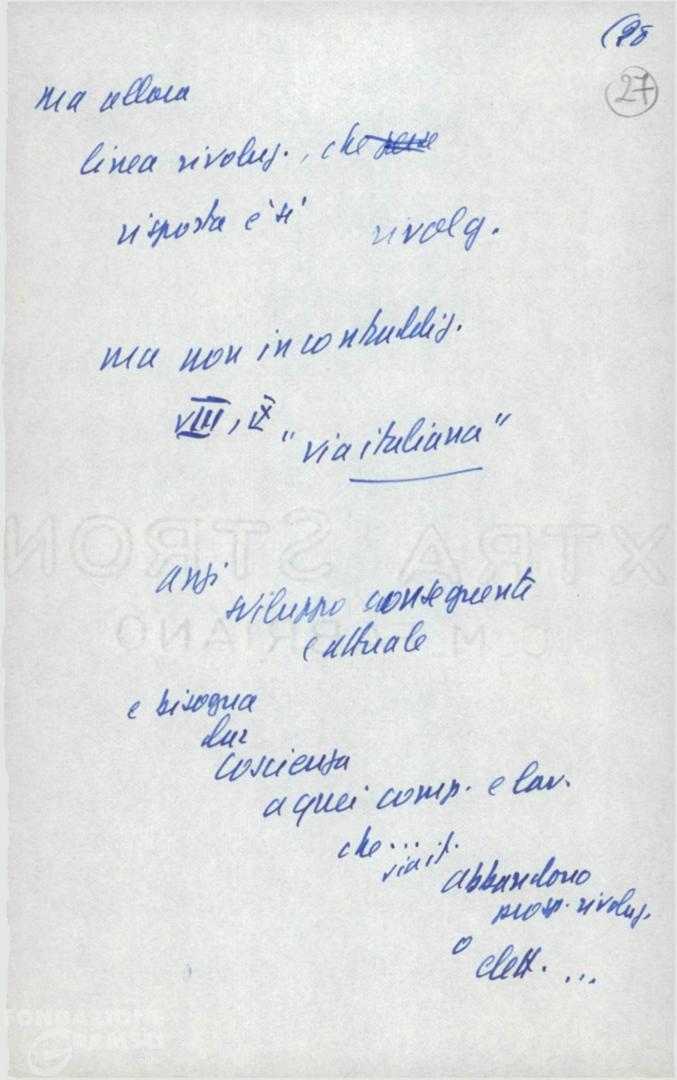 (28
27
ma allora
linea rivoluz., che
risposta è "sì" rivolg.
ma non in contraddiz.
VIII, IX "via italiana"
anzi
sviluppo conseguente
e attuale
e bisogna
dar
coscienza
a quei comp. e lav.
che...
via it.
abbandono
prosp. rivoluz.
o
elett. ...
XTRA STRON
C.M. FABRIANO
FONDAZIONE
GRAMSCI